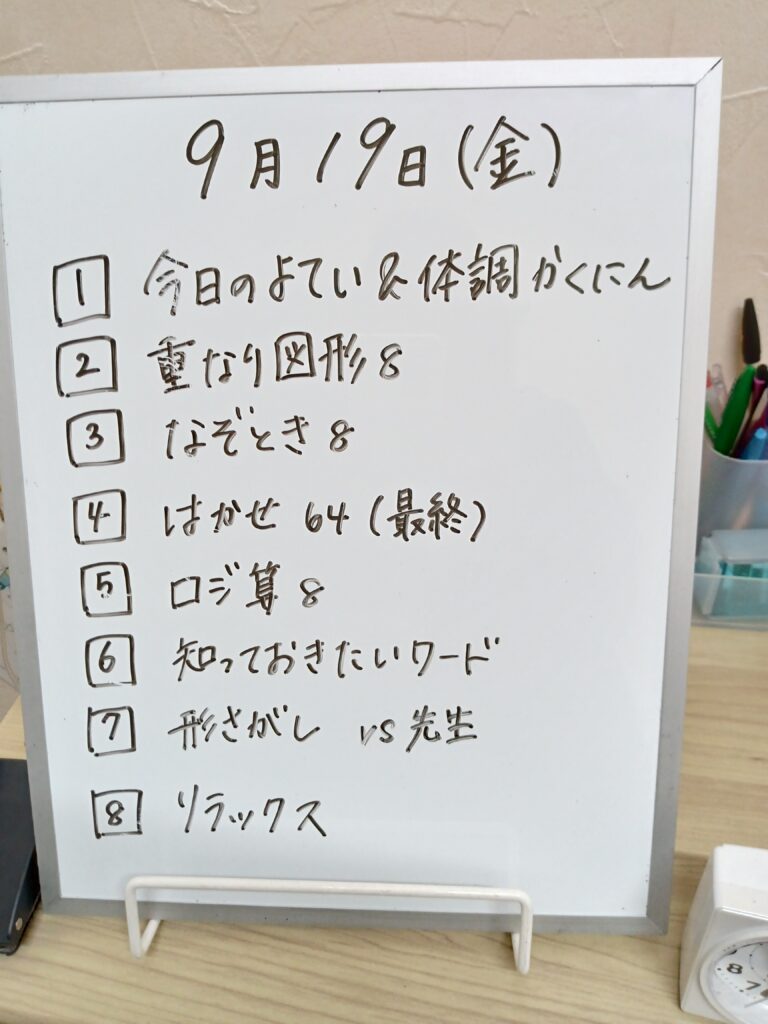 9月19日(金)
1 今日のよてい&体調かくにん
2 重なり図形8
3 なぞとき8
4 はかせ 64(最終)
5 ロジ算8
6 知っておきたいワード
7 形さがし vs先生
8 リラックス
8
7